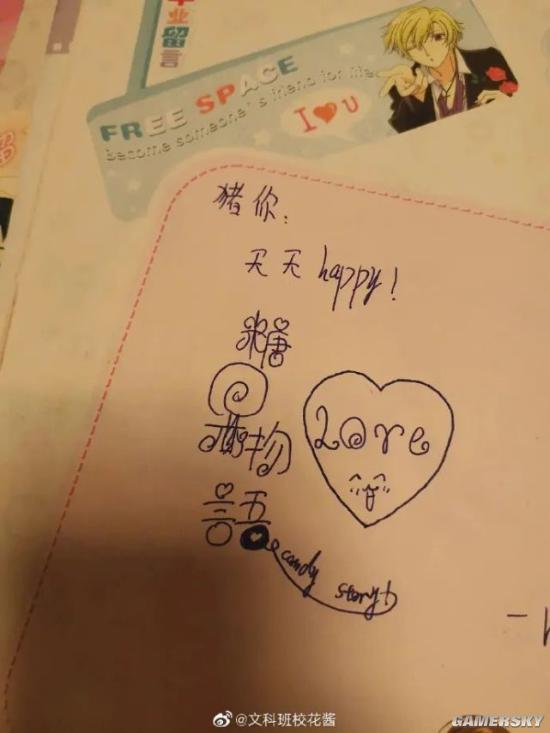 毕业留言
FREE SPACE
Become someone's friend for life.
I ❤ U
猪你:
天天 happy!
糖
果
物
语
Love
candy story
@文科班校花酱
GAMERSKY